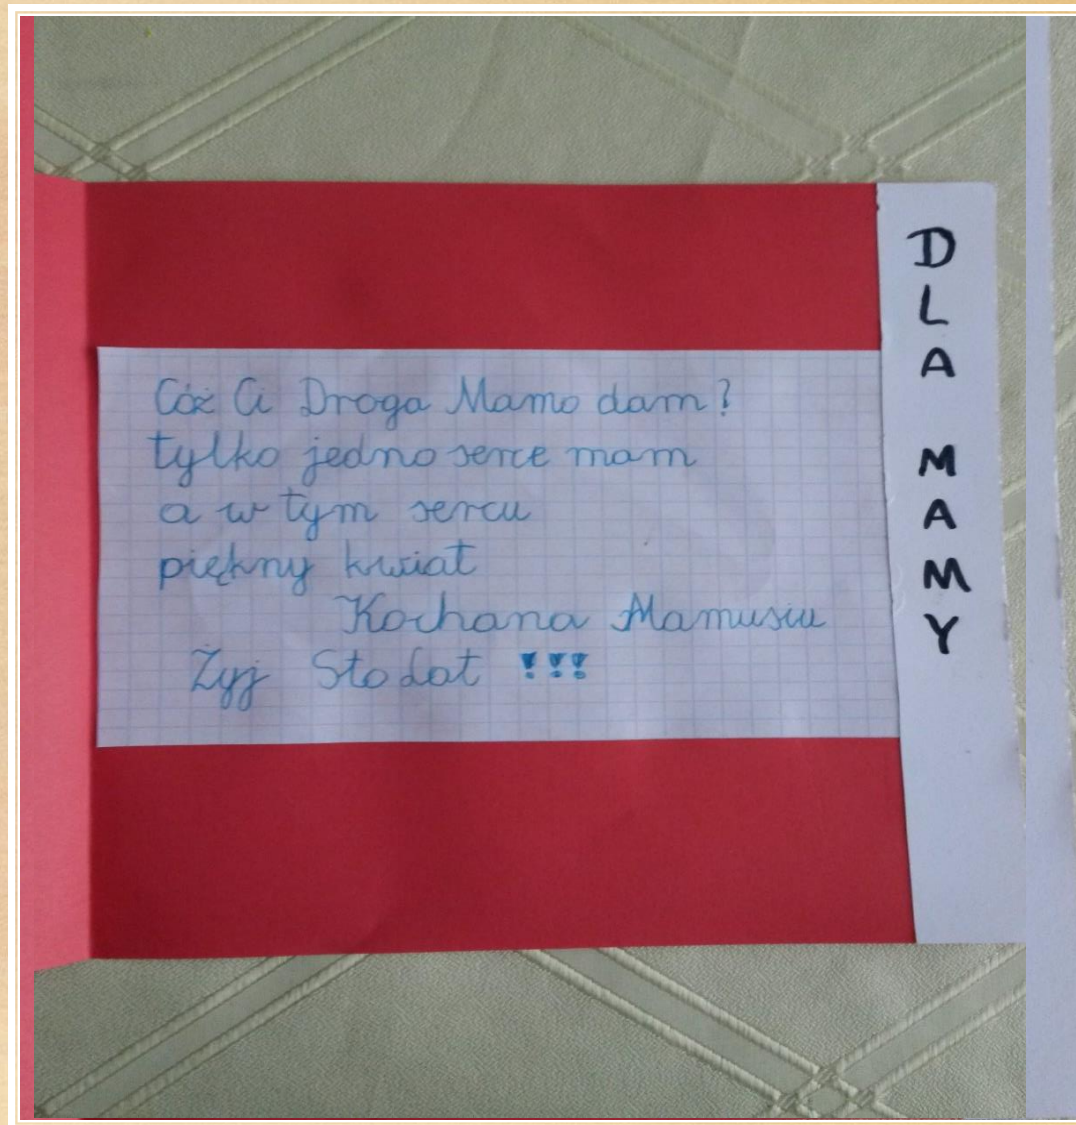 Cóż Ci Droga Mamo dam?
tylko jedno serce mam
a w tym sercu
piękny kwiat
Kochana Mamusiu
Żyj Sto Lat !!!
DLA MAMY